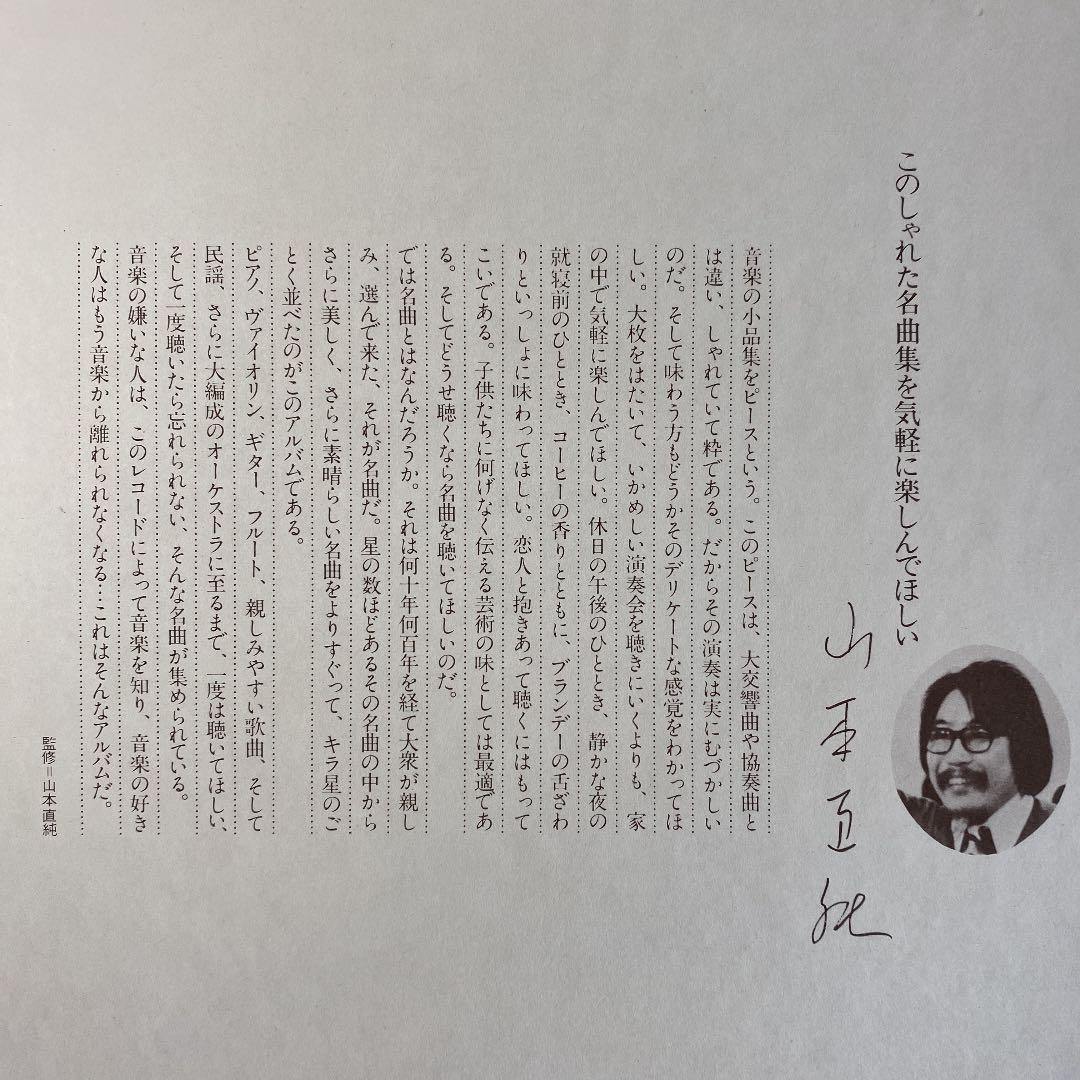 このしゃれた名曲集を気軽に楽しんでほしい
山本直純
音楽の小品集をピースという。このピースは、大交響曲や協奏曲と
は違い、しゃれていて粋である。だからその演奏は実にむづかしい
のだ。そして味わう方もどうかそのデリケートな感覚をわかってほ
しい。大枚をはたいて、いかめしい演奏会を聴きにいくよりも、家
の中で気軽に楽しんでほしい。休日の午後のひととき、静かな夜の
就寝前のひととき、コーヒーの香りとともに、ブランデーの舌ざわ
りといっしょに味わってほしい。恋人と抱きあって聴くにはもって
こいである。子供たちに何げなく伝える芸術の味としては最適であ
る。そしてどうせ聴くなら名曲を聴いてほしいのだ。
では名曲とはなんだろうか。それは何十年何百年を経て大衆が親し
み、選んで来た、それが名曲だ。星の数ほどあるその名曲の中から
さらに美しく、さらに素晴らしい名曲をよりすぐって、キラ星のご
とく並べたのがこのアルバムである。
ピアノ、ヴァイオリン、ギター、フルート、親しみやすい歌曲、そして
民謡、さらに大編成のオーケストラに至るまで、一度は聴いてほしい、
そして一度聴いたら忘れられない、そんな名曲が集められている。
音楽の嫌いな人は、このレコードによって音楽を知り、音楽の好き
な人はもう音楽から離れられなくなる…これはそんなアルバムだ。
監修=山本直純